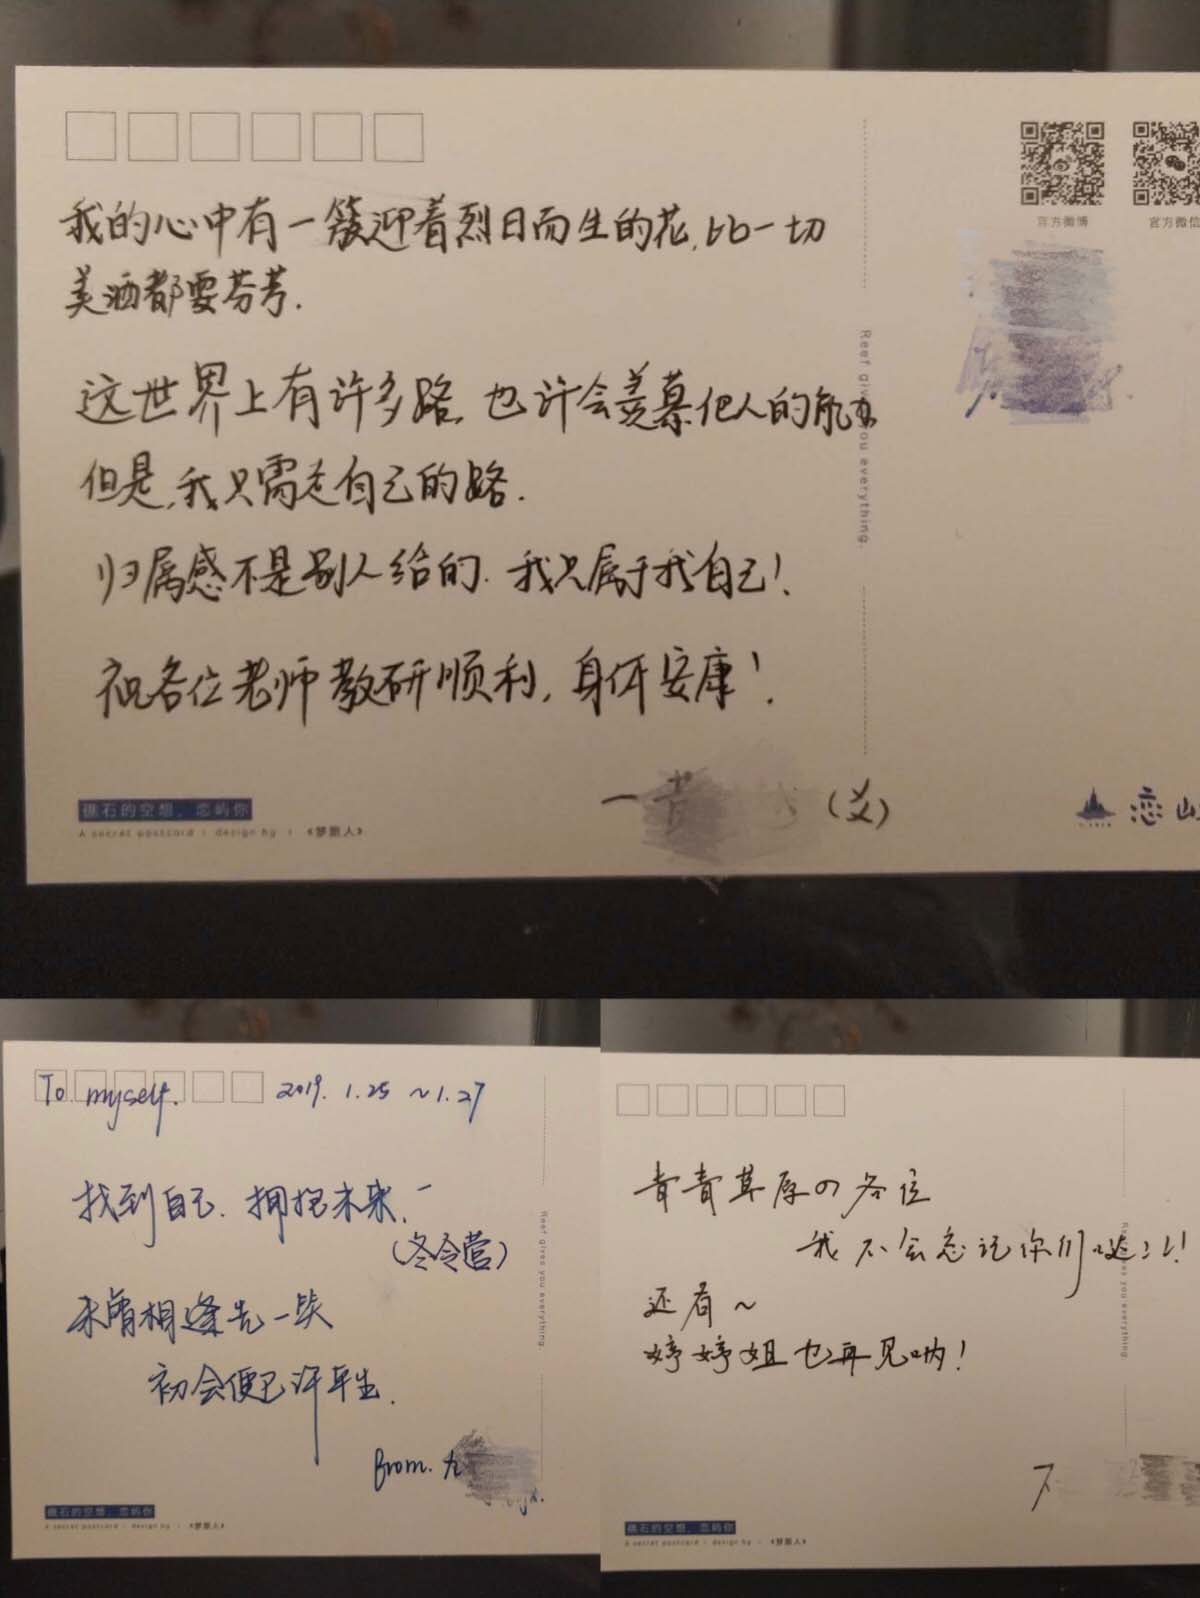 官方微博
官方微信
我的心中有一簇迎着烈日而生的花,比一切
美酒都要芬芳.
这世界上有许多路,也许会羡慕他人的航
但是,我只需走自己的路.
归属感不是别人给的.我只属于我自己!
祝各位老师教研顺利,身体安康!
Reef gives you everything.
一黄
(义)
礁石的空想,恋屿你
A secret postcard · design by · 《梦旅人》
恋屿
To myself. 2019. 1.25 ~1.27
找到自己.拥抱未来.一
(冬令营)
未曾相逢先一笑
初会便已许平生.
from. 九
Reef gives you everything.
礁石的空想,恋屿你
A secret postcard · design by · 《梦旅人》
青青草原の各位
我不会忘记你们哒!!
还有~
婷婷姐也再见呐!
Reef gives you everything.
礁石的空想,恋屿你
A secret postcard · design by · 《梦旅人》